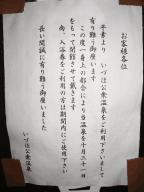 お客様各位
平素より いづは公衆温泉をご利用下さいまして
有り難う御座います
この度一身上の都合により当温泉を十月三十一日
をもって閉館させて戴きます
尚、入浴券をご利用の方は期間内にご使用下さい
長い間誠に有り難う御座いました
いづは公衆温泉